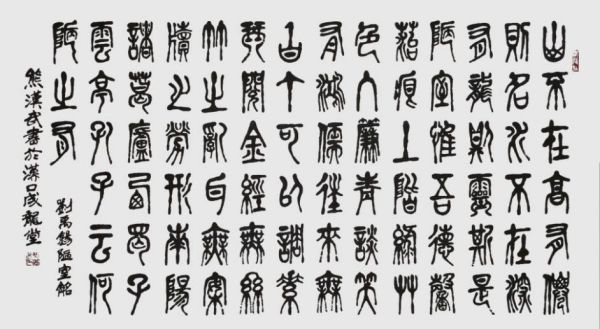 山不在高有僊
則名水不在深
有龍則靈斯是
陋室惟吾德馨
苔痕上階綠艸
色入簾青談笑
有鴻儒往來無
白丁可以調素
琴閱金經無絲
竹之亂耳無案
牘之勞形南陽
諸葛廬西蜀子
雲亭孔子云何
陋之有
劉禹錫陋室銘
熊漢武書於漢口成龍堂